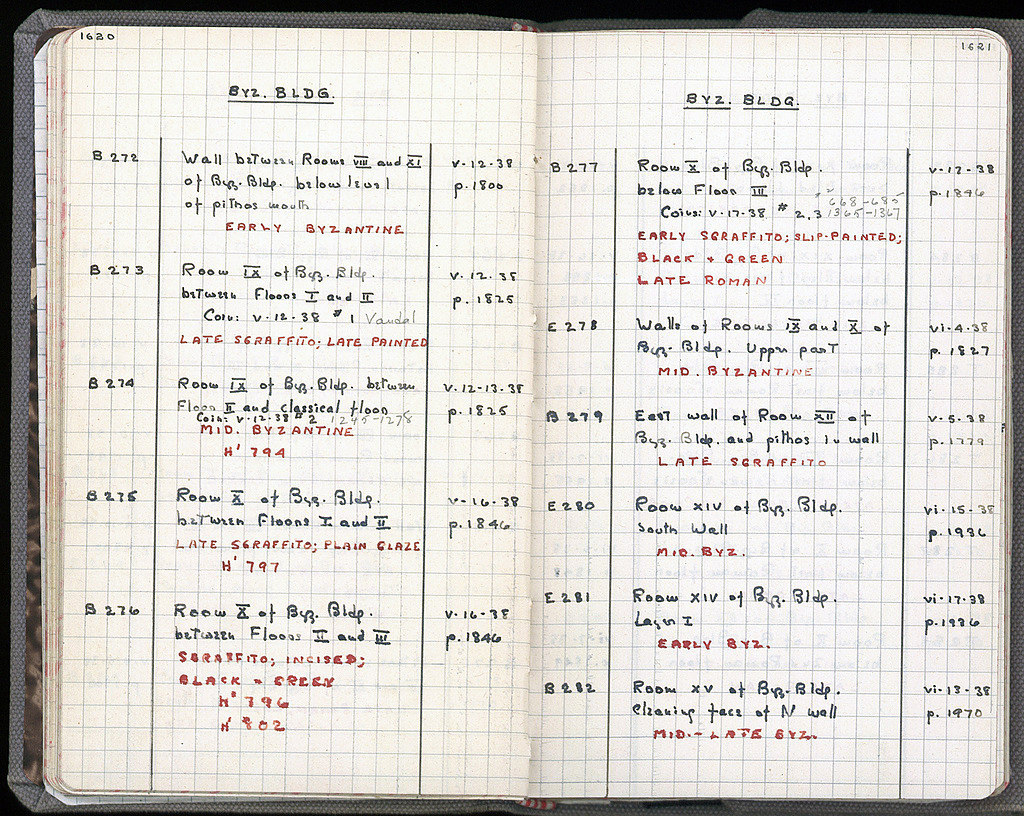 1620
BYZ. BLDG.
B 272 Wall between Rooms VIII and XI V-12-38
of Byz. Bldp. below level p. 1800
of pithos mouth
EARLY BYZANTINE
B 273 Room IX of Byz. Bldp. V-12-38
between Floors I and II p. 1825
Coin: V-12-38 #1 Vandal
LATE SGRAFFITO; LATE PAINTED
B 274 Room IX of Byz. Bldp. between V-12-13-38
Floor II and classical floor p. 1825
Coin: V-12-38 #2 1245-1278
MID. BYZANTINE
H' 794
B 275 Room X of Byz. Bldp. V-16-38
between Floors I and II p. 1846
LATE SGRAFFITO; PLAIN GLAZE
H' 797
B 276 Room X of Byz. Bldp. V-16-38
between Floors II and III p. 1846
SGRAFFITO; INCISED;
BLACK + GREEN
H' 796
H' 802
1621
BYZ. BLDG.
B 277 Room X of Byz. Bldp. V-17-38
below Floor III p. 1846
668-685
Coins: V-17-38 # 2,3 1365-1367
EARLY SGRAFFITO; SLIP-PAINTED;
BLACK + GREEN
LATE ROMAN
E 278 Walls of Rooms IX and X of vi-4-38
Byz. Bldp. Upper part p. 1827
MID. BYZANTINE
B 279 East wall of Room XII of V-5-38
Byz. Bldp. and pithos in wall p. 1779
LATE SGRAFFITO
E 280 Room XIV of Byz. Bldp. vi-15-38
South Wall p. 1936
MID. BYZ.
E 281 Room XIV of Byz. Bldp. vi-17-38
Layer I p. 1936
EARLY BYZ.
B 282 Room XV of Byz. Bldp. vi-13-38
Cleaning face of N wall p. 1970
MID.-LATE BYZ.